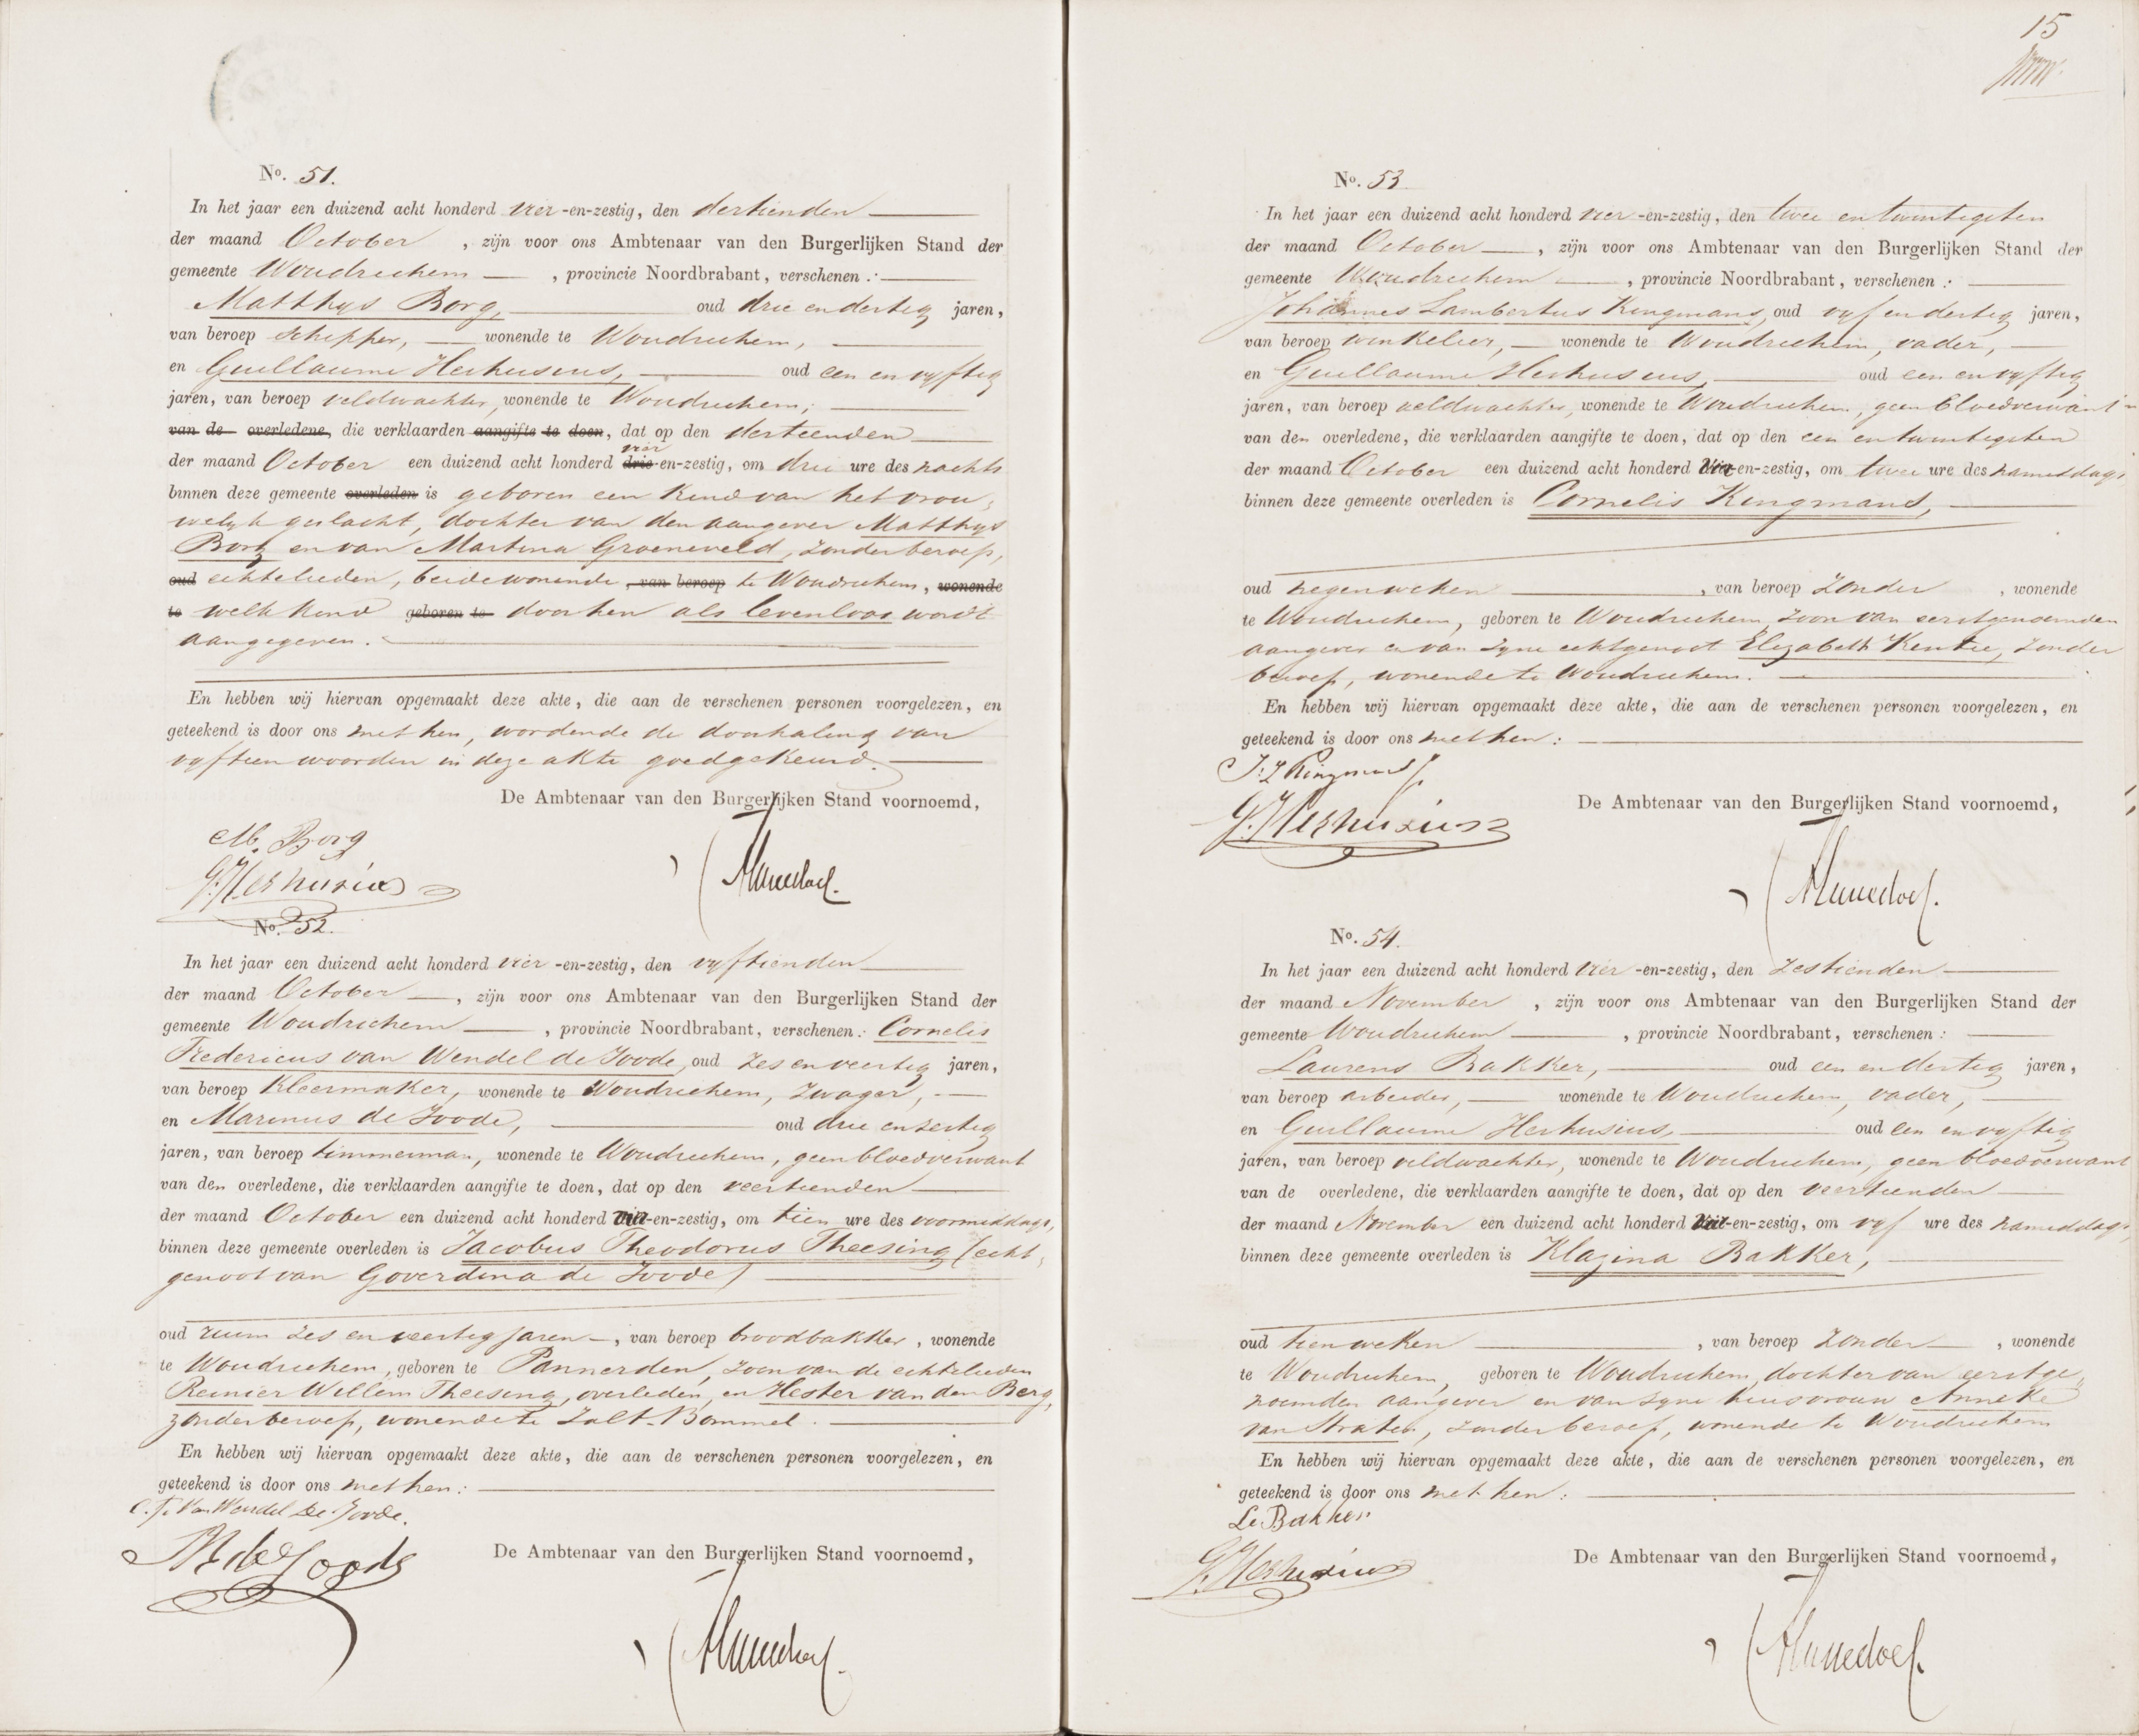 No. 51.
In het jaar een duizend acht honderd vier-en-zestig, den dertienden
der maand October, zijn voor ons Ambtenaar van den Burgerlijken Stand der
gemeente Woudrichem, provincie Noordbrabant, verschenen:
Matthys Borg, oud drie en dertig jaren,
van beroep schipper, wonende te Woudrichem,
en Guillaume Herhusius, oud een en vyftig
jaren, van beroep veldwachter, wonende te Woudrichem;
van de overledene, die verklaarden aangifte te doen, dat op den dertienden
vier
der maand October een duizend acht honderd drie-en-zestig, om drie ure des nachts
binnen deze gemeente overleden is geboren een kind van het vrou-
welyk geslacht, dochter van den aangever Matthys
Borg en van Martina Groeneveld, zonder beroep,
oud echtelieden, beide wonende, van beroep te Woudrichem, wonende
te welk kind geboren te door hen als levenloos wordt
aangegeven.
En hebben wij hiervan opgemaakt deze akte, die aan de verschenen personen voorgelezen, en
geteekend is door ons met hen, wordende de doorhaling van
vyftien woorden in deze akte goedgekeurd.
De Ambtenaar van den Burgerlijken Stand voornoemd,
M. Borg
G. Herhusius
No. 52.
In het jaar een duizend acht honderd vier-en-zestig, den vyftienden
der maand October, zijn voor ons Ambtenaar van den Burgerlijken Stand der
gemeente Woudrichem, provincie Noordbrabant, verschenen: Cornelis
Fredericus van Wendel de Joode, oud zes en veertig jaren,
van beroep kleermaker, wonende te Woudrichem, zwager,
en Marinus de Joode, oud drie en dertig
jaren, van beroep timmerman, wonende te Woudrichem, geen bloedverwant
van den overledene, die verklaarden aangifte te doen, dat op den veertienden
der maand October een duizend acht honderd vier-en-zestig, om tien ure des voormiddags,
binnen deze gemeente overleden is Jacobus Theodorus Theesing (echt-
genoot van Goverdina de Joode)
oud ruim zes en veertig jaren, van beroep broodbakker, wonende
te Woudrichem, geboren te Pannerden, zoon van de echtelieden
Reinier Willem Theesing, overleden, en Hester van den Berg,
zonder beroep, wonende te Zalt-Bommel.
En hebben wij hiervan opgemaakt deze akte, die aan de verschenen personen voorgelezen, en
geteekend is door ons met hen:
C. F. Van Wendel De Joode.
M de Joode
De Ambtenaar van den Burgerlijken Stand voornoemd,
15
No. 53.
In het jaar een duizend acht honderd vier-en-zestig, den twee en twintigsten
der maand October, zijn voor ons Ambtenaar van den Burgerlijken Stand der
gemeente Woudrichem, provincie Noordbrabant, verschenen:
Johannes Lambertus Kingmans, oud vyf en dertig jaren,
van beroep winkelier, wonende te Woudrichem, vader,
en Guillaume Herhusius, oud een en vyftig
jaren, van beroep veldwachter, wonende te Woudrichem, geen bloedverwant
van den overledene, die verklaarden aangifte te doen, dat op den een en twintigsten
der maand October een duizend acht honderd vier-en-zestig, om twee ure des namiddags,
binnen deze gemeente overleden is Cornelis Kingmans,
oud negen weken, van beroep zonder, wonende
te Woudrichem, geboren te Woudrichem, zoon van eerstgenoemden
aangever en van zyne echtgenoot Elizabeth Kentie, zonder
beroep, wonende te Woudrichem.
En hebben wij hiervan opgemaakt deze akte, die aan de verschenen personen voorgelezen, en
geteekend is door ons met hen:
J. L Kingmans
G. Herhusius
De Ambtenaar van den Burgerlijken Stand voornoemd,
No. 54.
In het jaar een duizend acht honderd vier-en-zestig, den zestienden
der maand November, zijn voor ons Ambtenaar van den Burgerlijken Stand der
gemeente Woudrichem, provincie Noordbrabant, verschenen:
Laurens Bakker, oud een en dertig jaren,
van beroep arbeider, wonende te Woudrichem, vader,
en Guillaume Herhusius, oud een en vyftig
jaren, van beroep veldwachter, wonende te Woudrichem, geen bloedverwant
van de overledene, die verklaarden aangifte te doen, dat op den veertienden
der maand November een duizend acht honderd vier-en-zestig, om vyf ure des namiddags,
binnen deze gemeente overleden is Klazina Bakker,
oud tien weken, van beroep zonder, wonende
te Woudrichem, geboren te Woudrichem, dochter van eerstge-
noemden aangever en van zyne huisvrouw Anneke
van Straten, zonder beroep, wonende te Woudrichem
En hebben wij hiervan opgemaakt deze akte, die aan de verschenen personen voorgelezen, en
geteekend is door ons met hen:
L. Bakker
G. Herhusius
De Ambtenaar van den Burgerlijken Stand voornoemd,